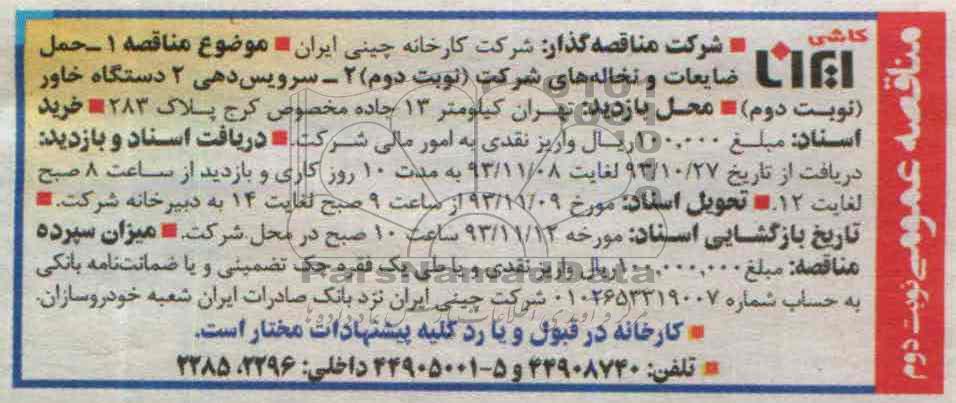 مناقصه عمومی نوبت دوم
کاشی
ایرانا
■ شرکت مناقصه‌گذار: شرکت کارخانه چینی ایران ■ موضوع مناقصه ۱ ـ حمل
ضایعات و نخاله‌های شرکت (نوبت دوم) ۲ ـ سرویس‌دهی ۲ دستگاه خاور
(نوبت دوم) ■ محل بازدید: تهران کیلومتر ۱۳ جاده مخصوص کرج پلاک ۲۸۳ ■ خرید
اسناد: مبلغ ریال واریز نقدی به امور مالی شرکت. ■ دریافت اسناد و بازدید:
دریافت از تاریخ ۹۳/۱۰/۲۷ لغایت ۹۳/۱۱/۰۸ به مدت ۱۰ روز کاری و بازدید از ساعت ۸ صبح
لغایت ۱۲. ■ تحویل اسناد: مورخ ۹۳/۱۱/۰۹ از ساعت ۹ صبح لغایت ۱۴ به دبیرخانه شرکت. ■
تاریخ بازگشایی اسناد: مورخه ۹۳/۱۱/۱۲ ساعت ۱۰ صبح در محل شرکت. ■ میزان سپرده
مناقصه: مبلغ ریال واریز نقدی و یا طی یک فقره چک تضمینی و یا ضمانت‌نامه بانکی
به حساب شماره ۰۱۰۲۶۵۳۳۱۹۰۰۷ شرکت چینی ایران نزد بانک صادرات ایران شعبه خودروسازان.
■ کارخانه در قبول و یا رد کلیه پیشنهادات مختار است.
■ تلفن: ۴۴۹۰۸۷۴۰ و ۵-۴۴۹۰۵۰۰۱ داخلی: ۲۲۹۶، ۲۲۸۵
ParsNamadData